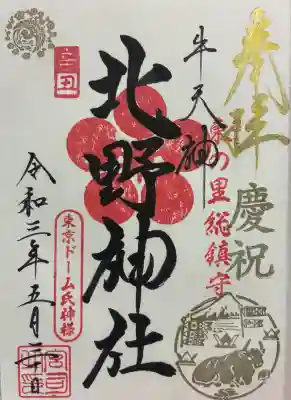 奉拝
慶祝
牛天神
の里総鎮守
北野神社
辛丑
東京ドーム氏神様
令和三年五月二十日